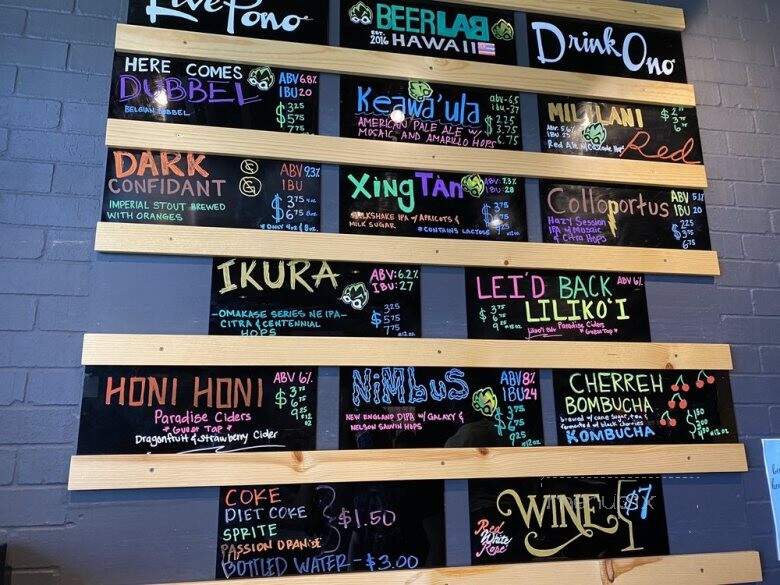 Live Pono
BEER LAB
EST. 2016 HAWAII
Drink Ono
HERE COMES
DUBBEL
BELGIAN DUBBEL
ABV 6.8%
IBU 20
$ 3.25
5.75
7.75
Keawa'ula
AMERICAN PALE ALE W/
MOSAIC AND AMARILLO HOPS
$ 2.25
3.75
6.75
MILILANI
Red
DARK
CONFIDANT
IMPERIAL STOUT BREWED
WITH ORANGES
ABV 9.3%
IBU
$ 3.75 4oz
6.75 8oz
* ONLY 4oz & 8oz.
Xing Tàn
MILKSHAKE IPA W/ APRICOTS &
MILK SUGAR
ABV: 7.3%
IBU: 28
$ 3.75
* CONTAINS LACTOSE
Colloportus
Hazy Session
IPA w/ Mosaic
& Citra Hops
IBU 20
$ 2.25
6.75
IKURA
-OMAKASE SERIES NE IPA-
CITRA & CENTENNIAL
HOPS
ABV: 6.2%
IBU: 27
$ 3.25
5.75
7.75
LEI'D BACK
LILIKO'I
ABV 6%
Paradise Ciders
* Guest Tap *
HONI HONI
Paradise Ciders
* Guest Tap *
Dragonfruit & Strawberry Cider
ABV 6%
$ 3.75
6.75
9.25
NiMbuS
NEW ENGLAND DIPA W/ GALAXY &
NELSON SAUVIN HOPS
ABV 8%
IBU 24
$ 3.75
6.75
9.25
CHERREH
BOMBUCHA
brewed w/ cane sugar, tea &
fermented w/ black cherries
KOMBUCHA
COKE
DIET COKE
SPRITE
PASSION ORANGE
$1.50
BOTTLED WATER - $3.00
WINE $7
Red
White
Rose